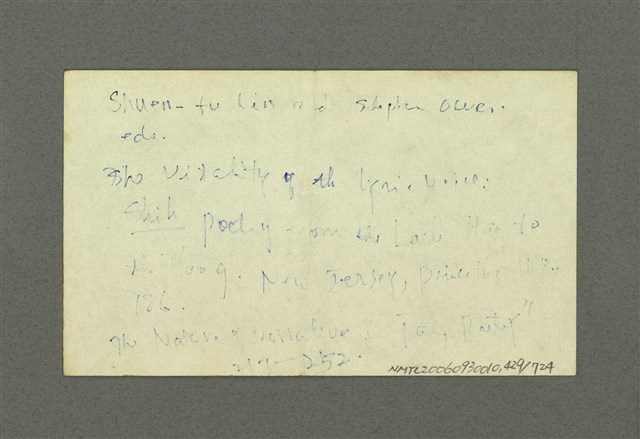 Shuen-fu Lin and Stephen Owen.
eds.
The Vitality of the Lyric Voice:
Shih Poetry from the Late Han to
the Tang. New Jersey, Princeton U.P.
186.
The Nature of Narrative in Tang Poetry"
217-252.
NMTL20060930010.429/724